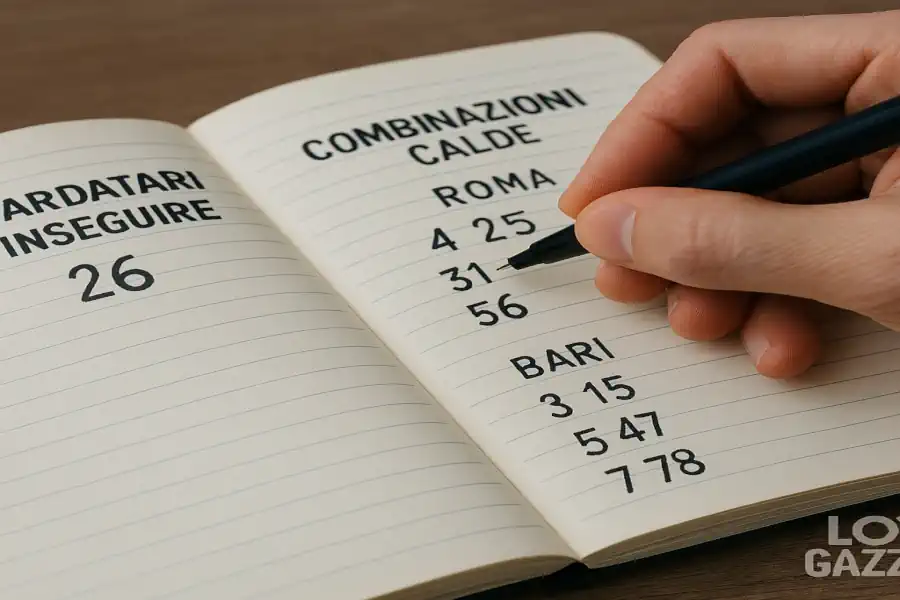 ARDATARI
INSEGUIRE
26
COMBINAZIONI
CALDE
ROMA
4 25
31
56
BARI
3 15
5 47
7 78
LO
GAZZ